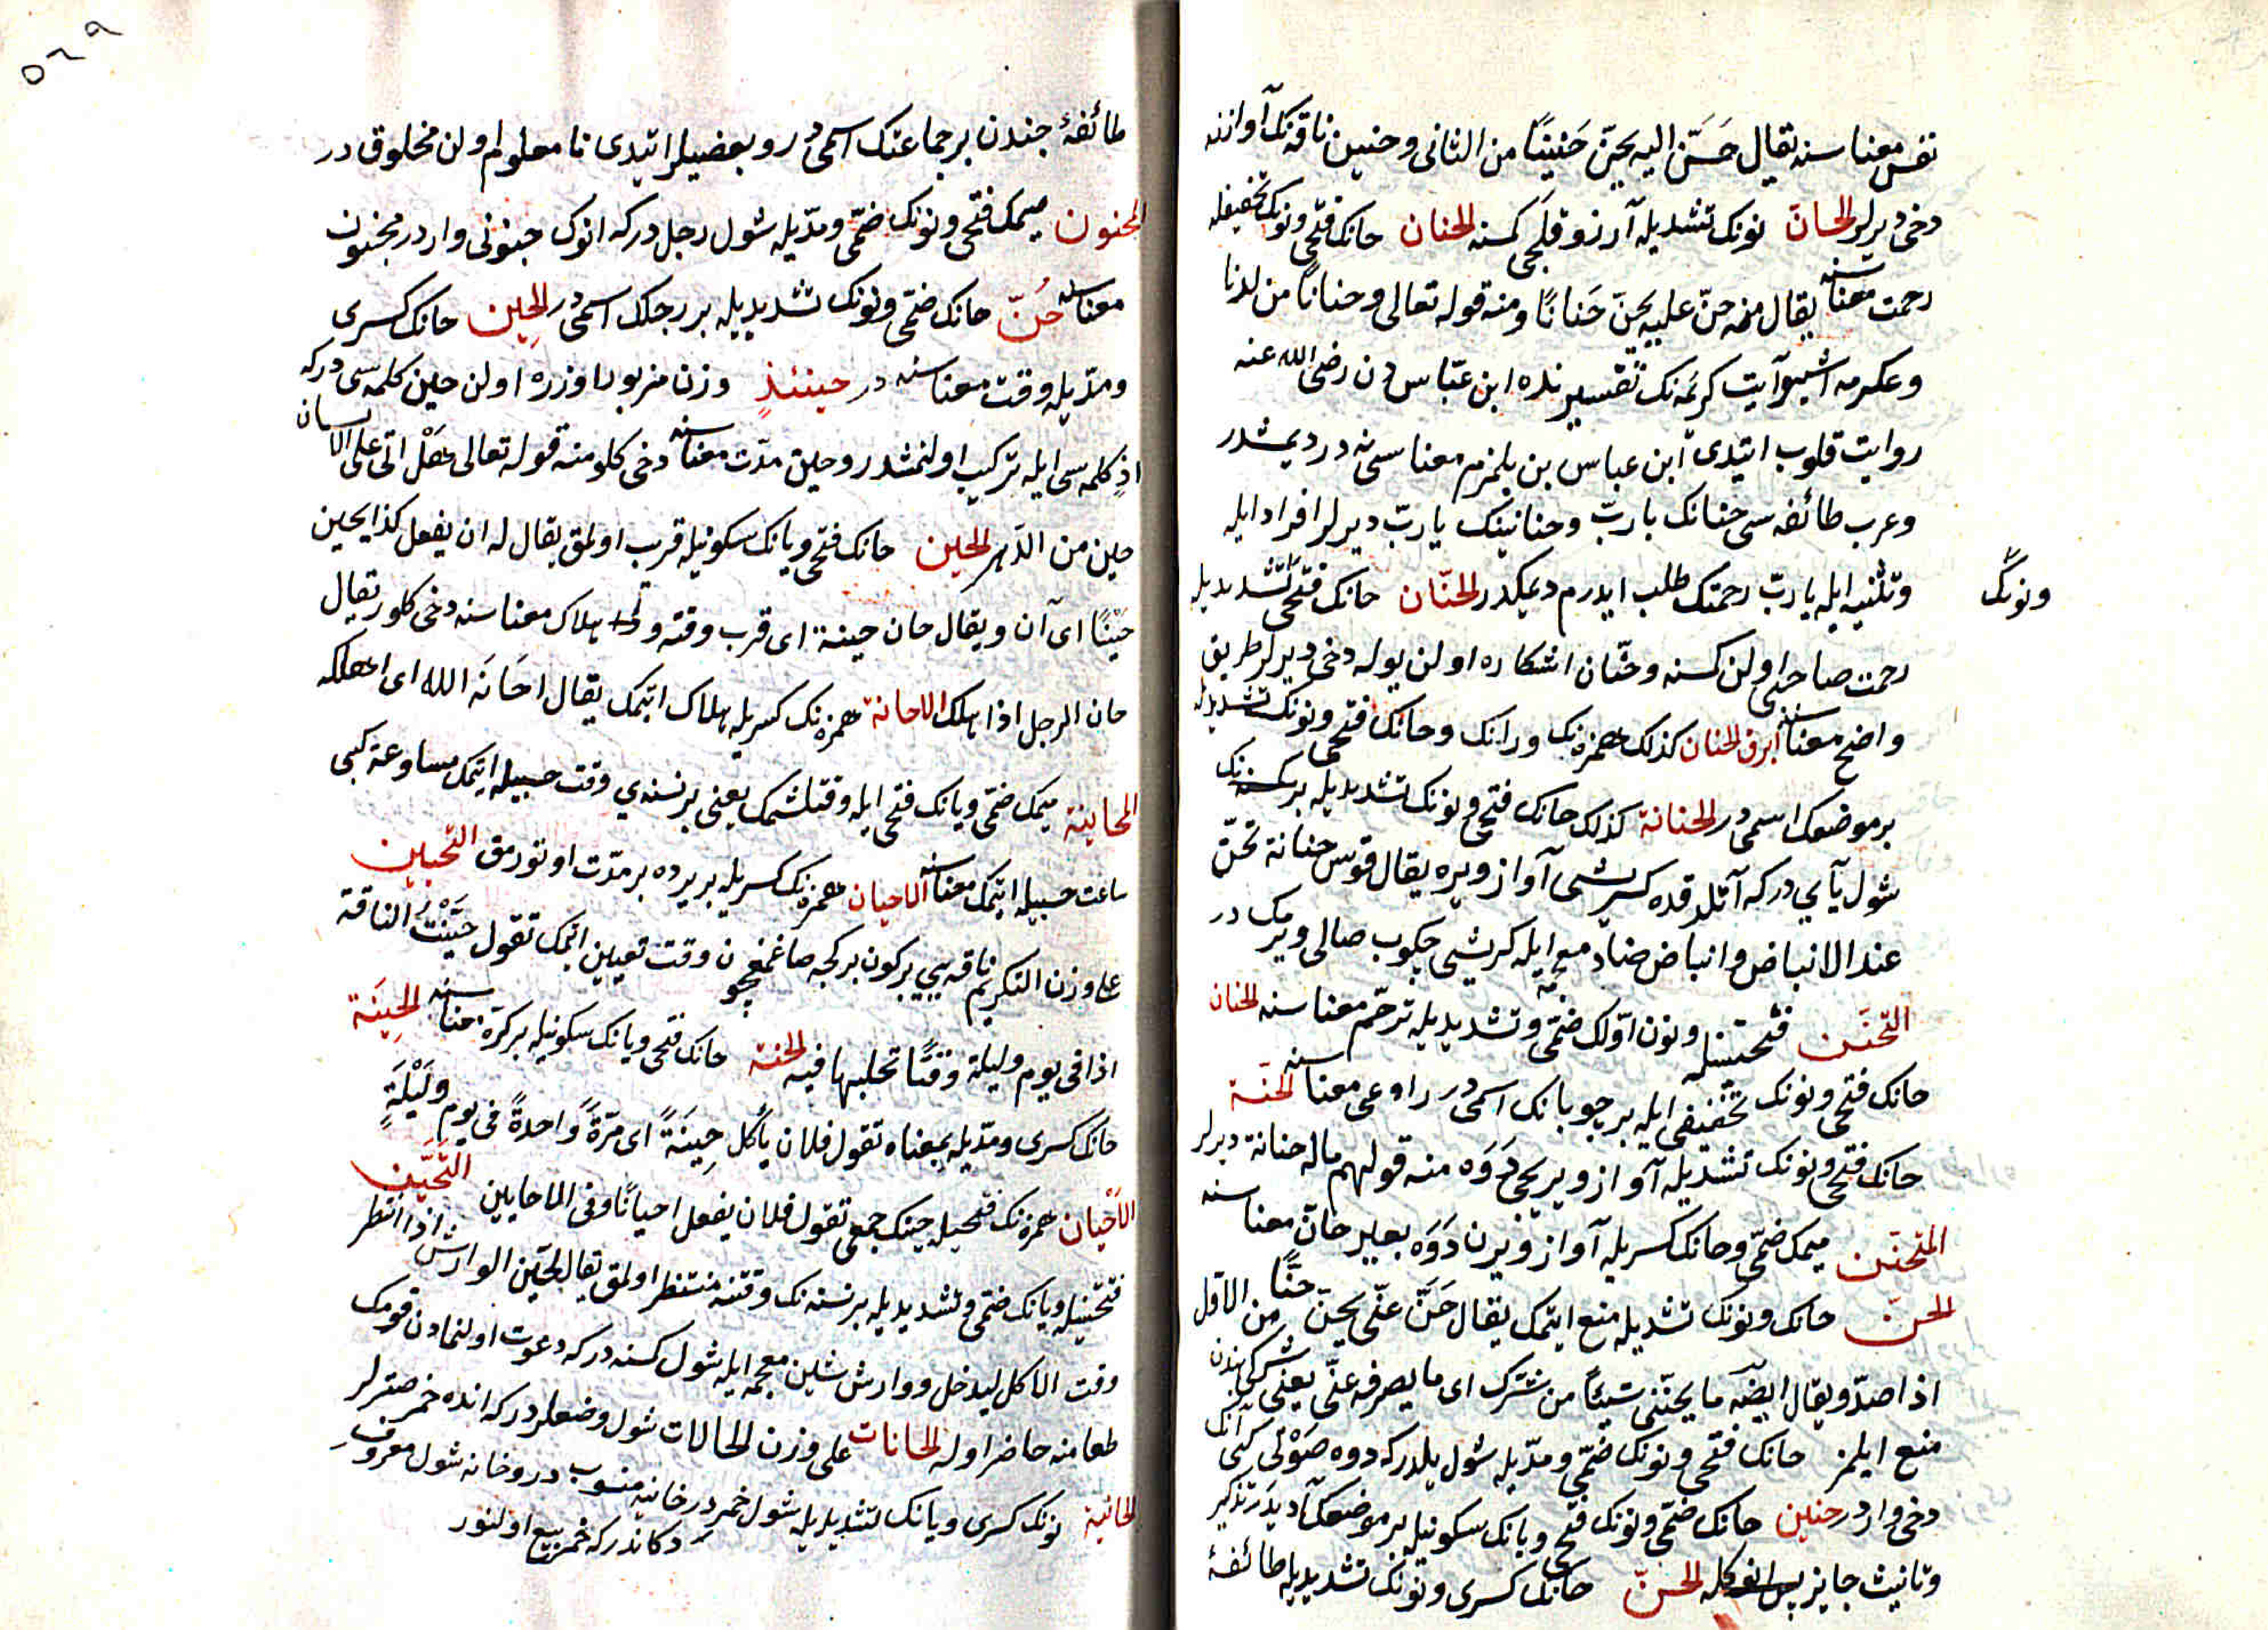 نفس معناسنه يقال حَسَّنَ اليه يحنّ حَنينًا من الثانى وحنين ناقه نك آوازنه
دخى ديرلر الحانّ نونك تشديديله آرزو قلجى كمسنه الحنان حانك فتحى ونونك تخفيفيله
رحمت معناسنه يقال منه حنّ عليه يحنّ حَنانًا ومنه قوله تعالى وحنانًا من لدنا
وعكرمه اشبو آيت كريمه نك تفسيرنده ابن عبّاس دن رضى الله عنه
روايت قلوب ايتدى ابن عباس بن بلمزم معناسى نه در ديمشدر
وعرب طائفه سى حنانك يا ربّ وحنانيك يا ربّ ديرلر افراد ايله
وتثنيه ايله يا ربّ رحمتك طلب ايدرم ديمكدر الحنّان حانك فتحى تشديديله
ونونك
رحمت صاحبى اولن كمسنه وحنّان اشكاره اولن يوله دخى ديرلر طريق
واضح معناسنه ابرق الحنان كذلك همزه نك ورانك وحانك فتحى ونونك تشديديله
بر موضعك اسمى در الحنانة كذلك حانك فتحى ونونك تشديديله بر كسنه نك
شول يايى در كه آتلدقده كريشى آواز ويره يقال قوس حنانة تحنّ
عند الانباض وانباض ضاد معجمه ايله كريشى چكوب صالى ويرمك در
التحنّن فتحتينله ونون اوّلك ضمّى وتشديديله ترحّم معناسنه الحنان
حانك فتحى ونونك تخفيفى ايله بر چوبانك اسمى در راوعى معناسنه الحنّة
حانك فتحى ونونك تشديديله آواز ويريجى دَوَه منه قولهم ماله حنانة ديرلر
المتحنّن ميمك ضمّى وحانك كسريله آواز ويرن دَوَه بعير حانّ معناسنه
الحنّ حانك ونونك تشديديله منع ايتمك يقال حَنَّ عنّى يحنّ حنًّا من الاوّل
اذا صدّ ويقال ايضه ما يحنّنى شيئًا من شرّك اى ما يصرفه عنّى يعنى شرّكى بندن
منع ايلمز حانك فتحى ونونك ضمّى ومدّيله شول يلدر كه دوه صَوْتى كبى آنك
دخى واردر حنين حانك ضمّى ونونك فتحى ويانك سكونيله بر موضعك آديدر تذكير
وتانيث جايز الحنّ حانك كسرى ونونك تشديديله طائفۀ
طائفۀ جندن بر جماعتك اسمى در وبعضيلر ايتدى نا معلوم اولن مخلوق در
المجنون ميمك فتحى ونونك ضمّى ومدّيله شول رجل در كه انوك جنونى واردر مجنون
معناسنه حُنّ حانك ضمّى ونونك تشديديله بر رجلك اسمى در الحِين حانك كسرى
ومدّيله وقت معناسنه در حينئذٍ وزن مزبور اوزره اولن حين كلمه سى در كه
اذٍ كلمه سى ايله تركيب اولنمشدر وحين مدّت معناسنه دخى كلور منه قوله تعالى هَلْ اتى على الانسان
حين من الدّهر الحين حانك فتحى ويانك سكونيله قريب اولمق يقال له ان يفعل كذا يحين
حَيْنًا اى آن ويقال حان حينة اى قرب وقته وك هلاك معناسنه دخى كلور يقال
حان الرجل اذا هلك الاحانة همزه نك كسريله هلاك ايتمك يقال احَانَه الله اى اهلكه
المحاينة ميمك ضمّى ويانك فتحى ايله وقتلشمك يعنى بر نسنه يي وقت حسبيله ايتمك مساوعة كبى
ساعت حسبيله ايتمك معناسنه الاحيان همزه نك كسريله بر يرده بر مدّت اوتورمق التّحيين
على وزن التكريم ناقه يي بر كون بر كجه صاغمغيچون وقت تعيين ايتمك تقول حَيَّنْتُ الناقة
اذا فى يوم وليلة وقتًا تحلبها فيه الحنة حانك فتحى ويانك سكونيله بر كرّه معناسنه الحِينَة
حانك كسرى ومدّيله بمعناه تقول فلان يأكل حِينَةً اى مرّةً وَاحدةً فى يوم ولَيْلَةٍ
الاَحْيان همزه نك فتحيله حينك جمعى تقول فلان يفعل احيانًا وفى الاحايين التّحيّن
فتحتينله ويانك ضمّى وتشديديله بر نسنه نك وقتنه منتظر اولمق يقال تحيّن الوارش اذا انتظر
وقت الاكل ليدخل ووارش شين معجمه ايله شول كسنه در كه دعوت اولنمادن قومك
طعامنه حاضر اوله الحانات على وزن الحالات شول وضعلر در كه انده خمر صترلر
الحانية نونك كسرى ويانك تشديديله شول خمر در خانيه منسوب در وخانه شول معروف
دكاندر كه خمر بيع اولنور